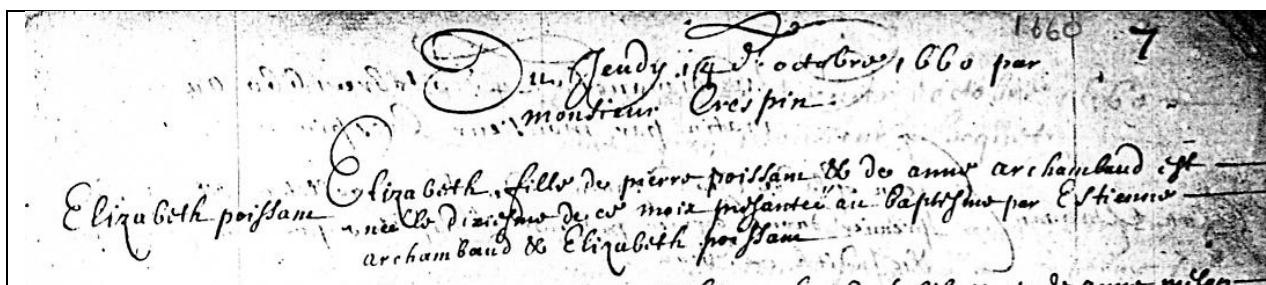 1660 7
Du Jeudy 14 d'octobre 1660 par
monsieur Crespin
Elizabeth poissam
Elizabeth fille de pierre poissam & de anne archambaud est
née le dixiesme de ce mois présantée au baptesme par Estienne
archambaud & Elizabeth poissam
de anne